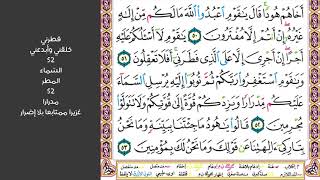 أَخَاهُمْ هُودًا قَالَ يَٰقَوْمِ ٱعْبُدُوا۟ ٱللَّهَ مَا لَكُم مِّنْ إِلَٰهٍ
غَيْرُهُۥٓ إِنْ أَنتُمْ إِلَّا مُفْتَرُونَ ٥٠ يَٰقَوْمِ لَآ أَسْـَٔلُكُمْ عَلَيْهِ
أَجْرًا إِنْ أَجْرِىَ إِلَّا عَلَى ٱلَّذِى فَطَرَنِىٓ أَفَلَا تَعْقِلُونَ ٥١
وَيَٰقَوْمِ ٱسْتَغْفِرُوا۟ رَبَّكُمْ ثُمَّ تُوبُوٓا۟ إِلَيْهِ يُرْسِلِ ٱلسَّمَآءَ
عَلَيْكُم مِّدْرَارًا وَيَزِدْكُمْ قُوَّةً إِلَىٰ قُوَّتِكُمْ وَلَا تَتَوَلَّوْا۟
مُجْرِمِينَ ٥٢ قَالُوا۟ يَٰهُودُ مَا جِئْتَنَا بِبَيِّنَةٍ وَمَا نَحْنُ
بِتَارِكِىٓ ءَالِهَتِنَا عَن قَوْلِكَ وَمَا نَحْنُ لَكَ بِمُؤْمِنِينَ ٥٣
فطرني
خلقني وأبدعني
52
السماء
المطر
52
مدرارا
غزيرا متتابعا بلا إضرار